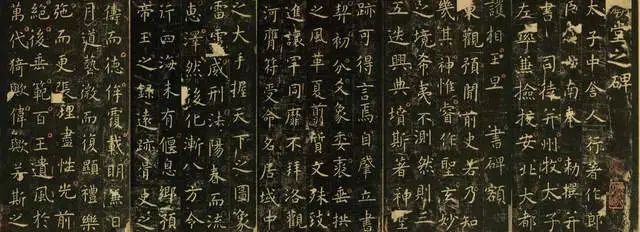 堂之碑
太子中舍人行著作郎
臣南奉勅撰并
書司徒并州牧太子
左率兼撿挍安北大都
護相王旦書碑額
東觀預聞前史若乃知
幾其神惟睿作聖玄妙
之境希夷不測然則三
五迭興典墳斯著神聖
跡可得言焉自肇立書
契初分爻象委裘垂拱
之風革夏翦質文殊致
進讓罕同靡不拜洛觀
河膺符受命名居域中
之大手握天下之圖象
雷電威刑法陽春而流
惠澤然後化漸八方令
行四海未有偃息鄉預
帝王之錄遠跡胥史之
儔而德侔覆載明兼日
月道藝微而復顯禮樂
弛而更張理盡性光前
絕後垂範百王遺風於
萬代猗歟偉歟若斯之